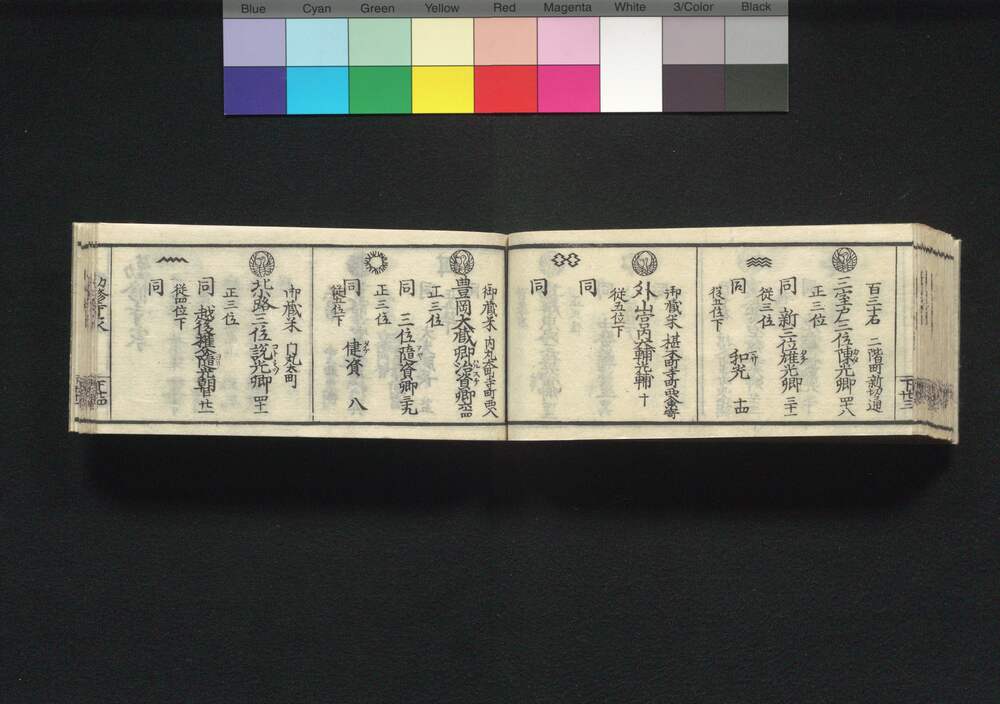 Blue Cyan Green Yellow Red Magenta White 3/Color Black
百三十石 二階町新切通
三室戸三位陳光卿 四十八
正三位
同 新三位雄光卿 三十一
従三位
同 和光 十四
従五位下
御蔵米
外山宮内大輔光輔 十
従五位下
同
同
御蔵米
豊岡大蔵卿治資卿 六十四
正三位
同 三位随資卿 三十九
正三位
同 健資 八
従五位下
御蔵米
北小路三位説光卿 四十一
正三位
同 越後権介随光朝臣 廿一
従四位下
同
下 廿三
下 廿四